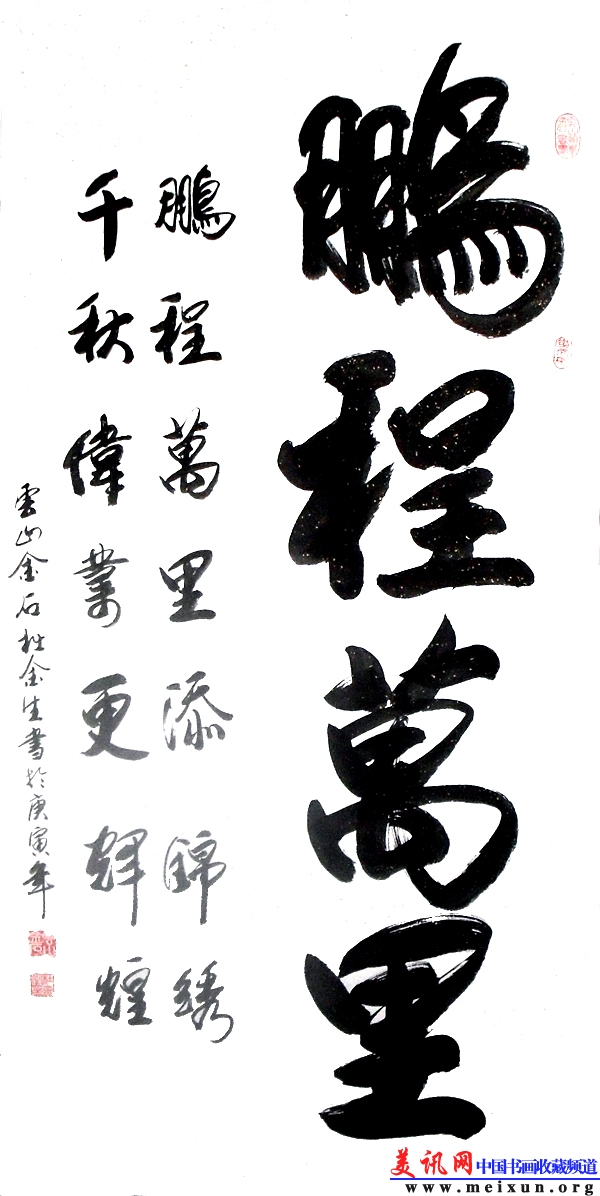 鵬程萬里
鵬程萬里添錦绣
千秋偉業更輝煌
雲山金石杜金生書於庚寅年
美讯网中国书画收藏频道
www.meixun.org